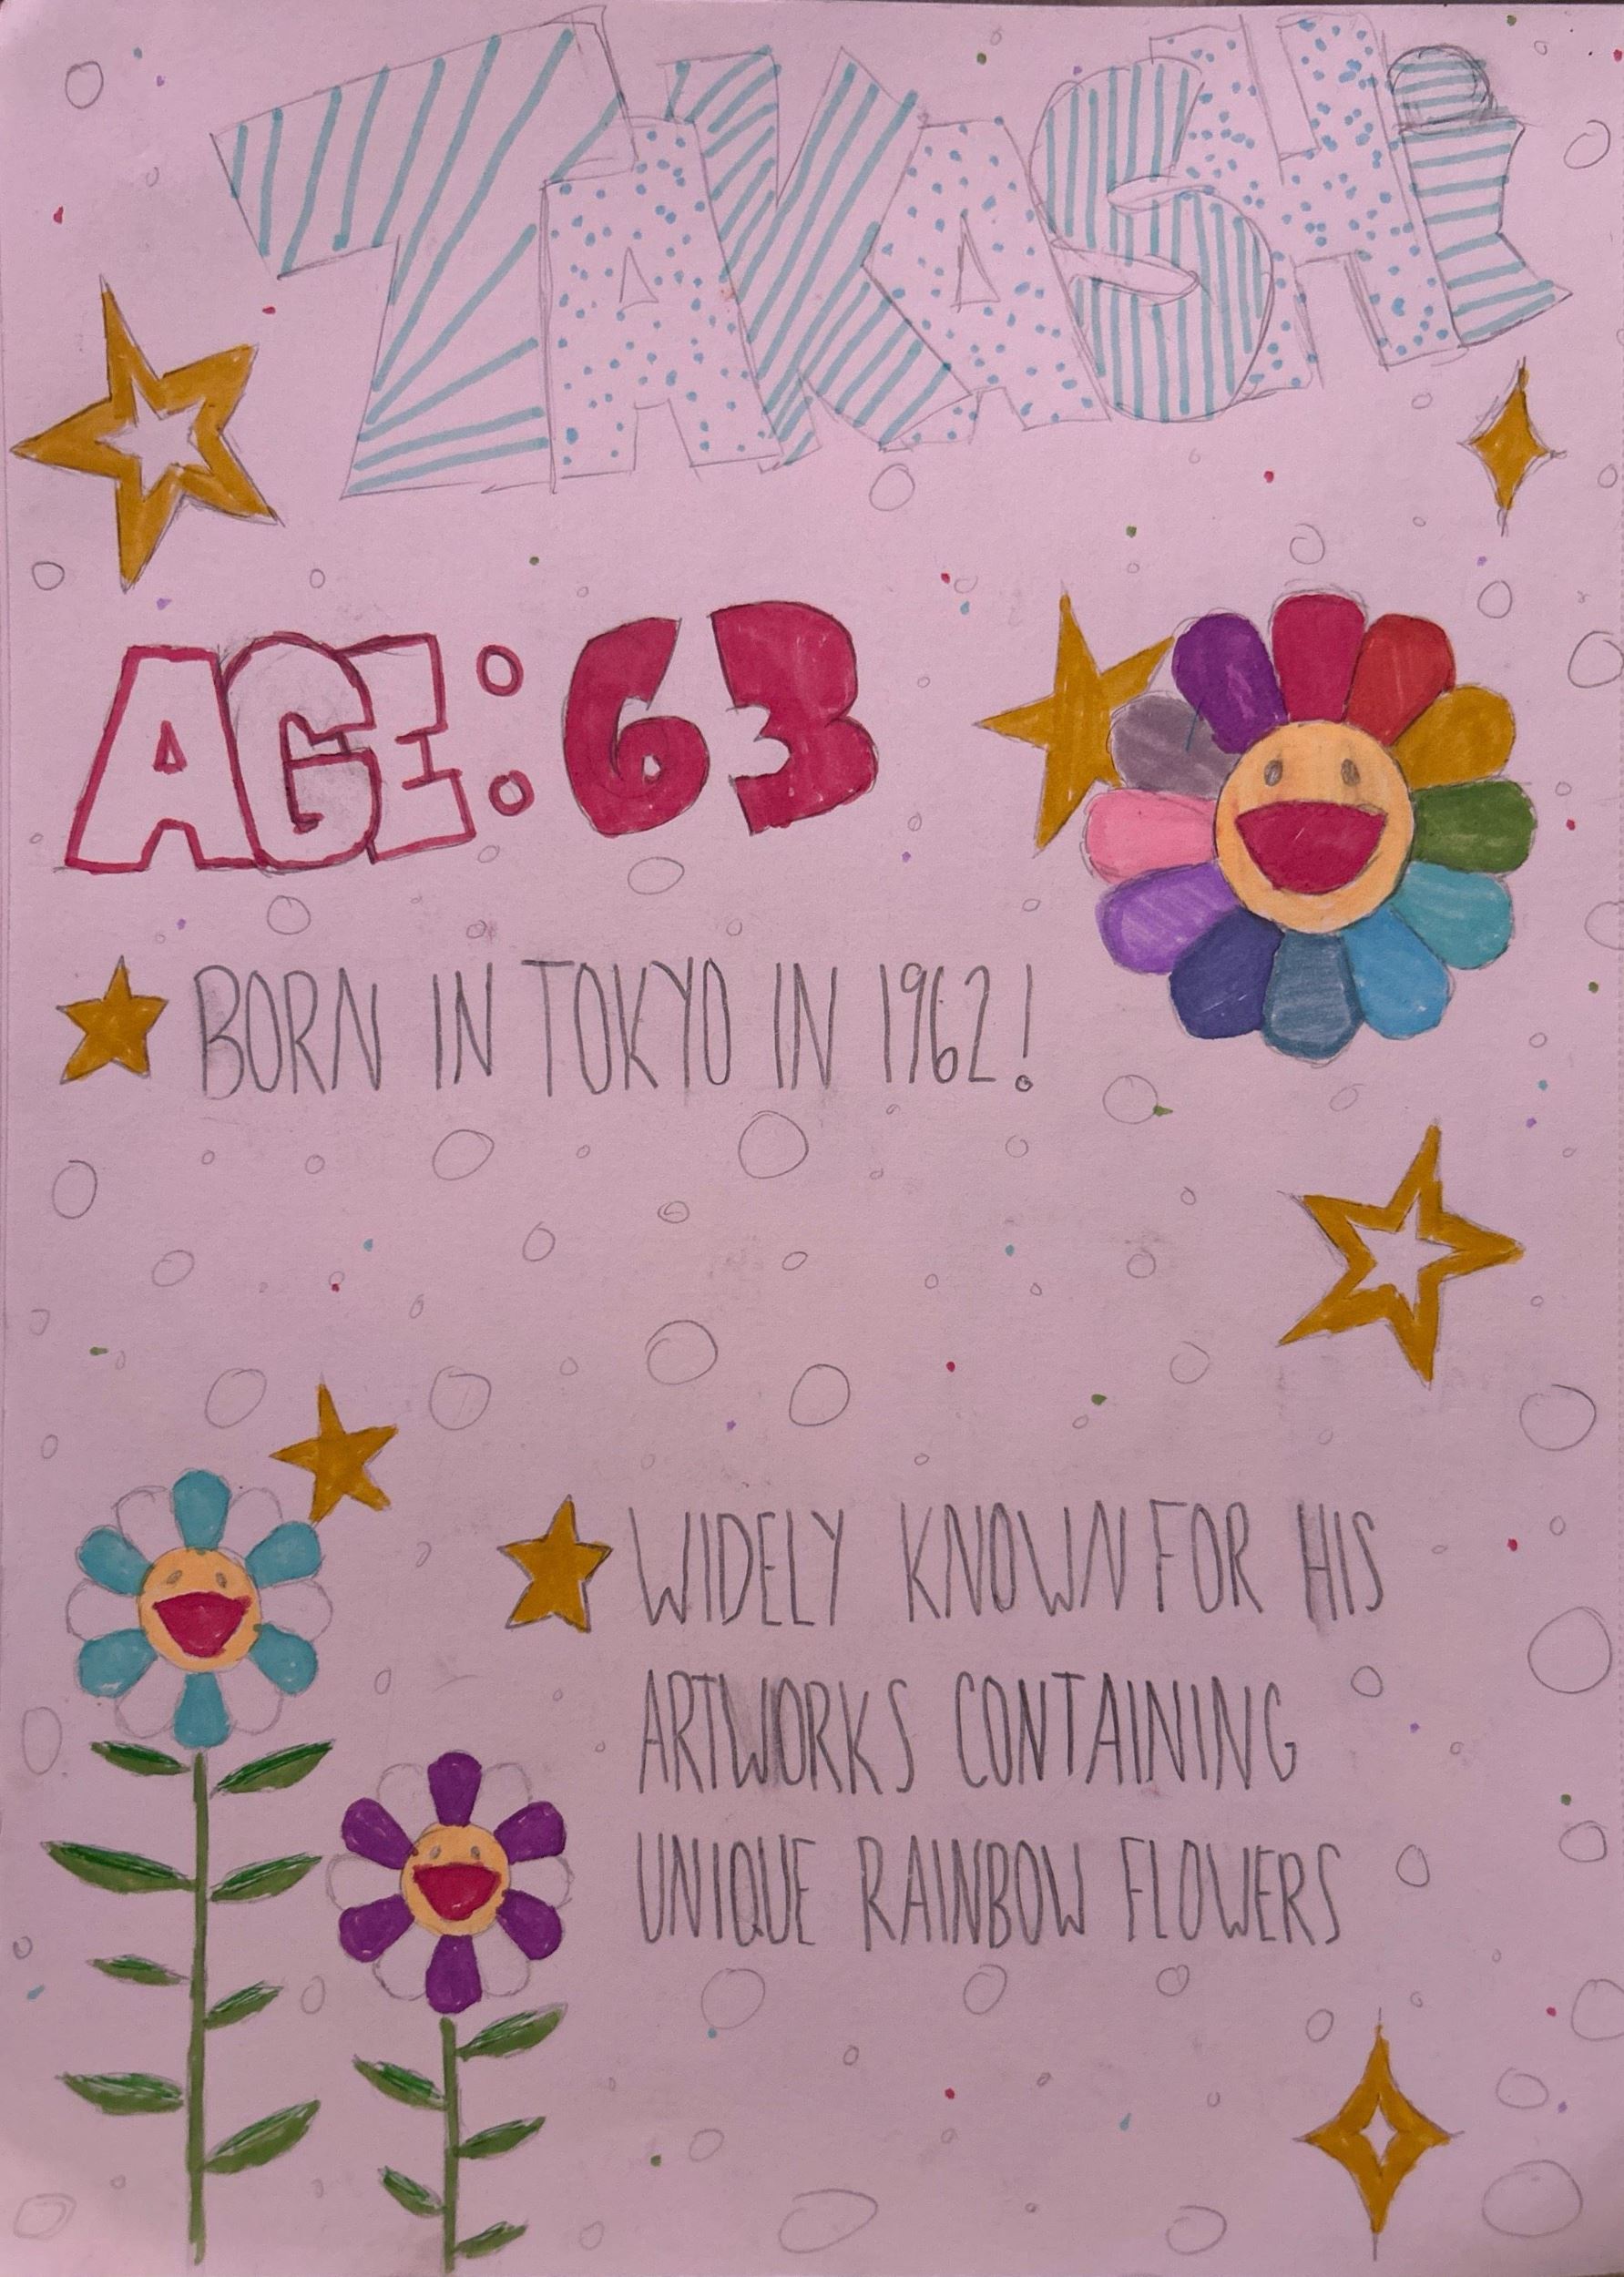 TAKASHI
AGE: 63
BORN IN TOKYO IN 1962!
WIDELY KNOWN FOR HIS
ARTWORKS CONTAINING
UNIQUE RAINBOW FLOWERS